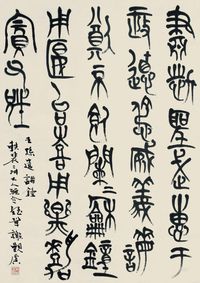 肅哲聖武惠于
政德淑于威義誨
猷不飤闌〻龢鐘
用匽台喜用樂嘉
賓父兄
王孫遺諸鐘
大人雅